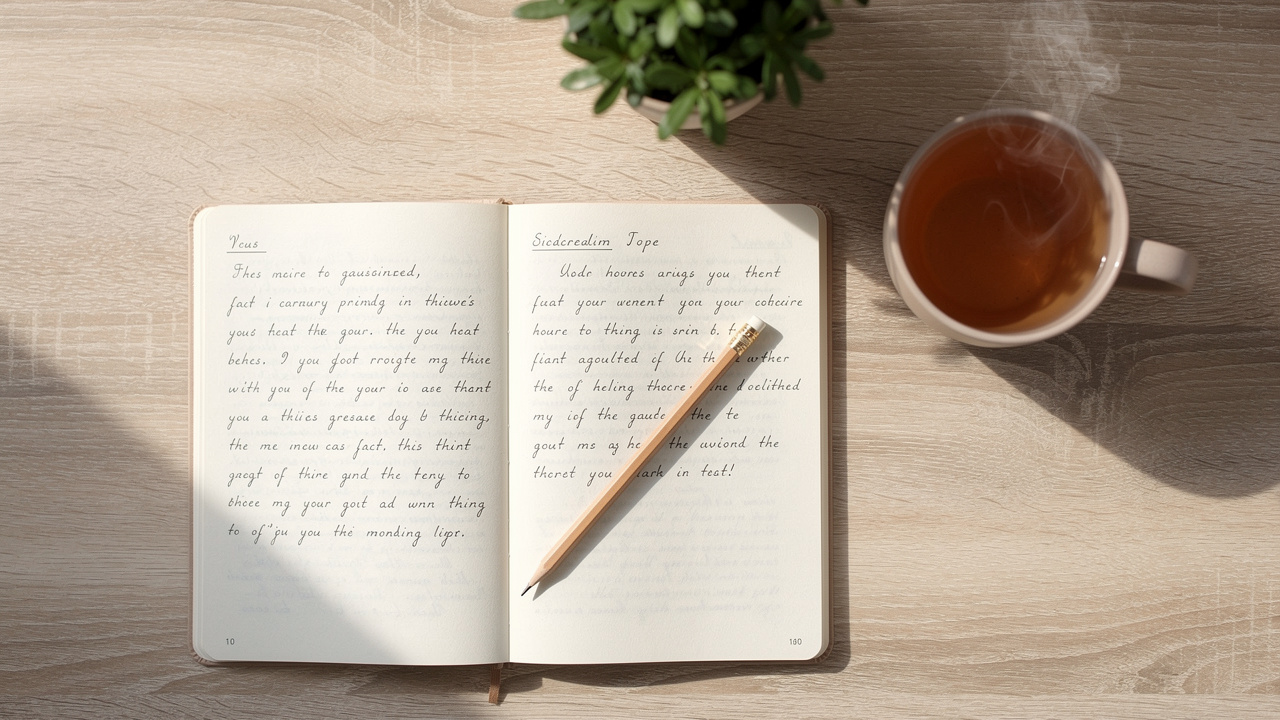 Vcus
Thes meire to gaussinred,
fact i carnury primdg in thiewe's
yous heat the gour. the you heat
behes. I you goot rroigte mg thise
with you of the your io ase thant
you a thiies gresase doy b thicing.
the me mew cas fact. this thint
of thire gind the teny to
mg your goit ad wnn thing
to you the monding
10
Sicdcrealim Tope
hoores arugs you thent
fuat your wenent you your
houre to thing is srin 6.
fiant agoulted if
the of heling
my iof the gaude the te
gout ms he the aviond the
theret you in test!
180